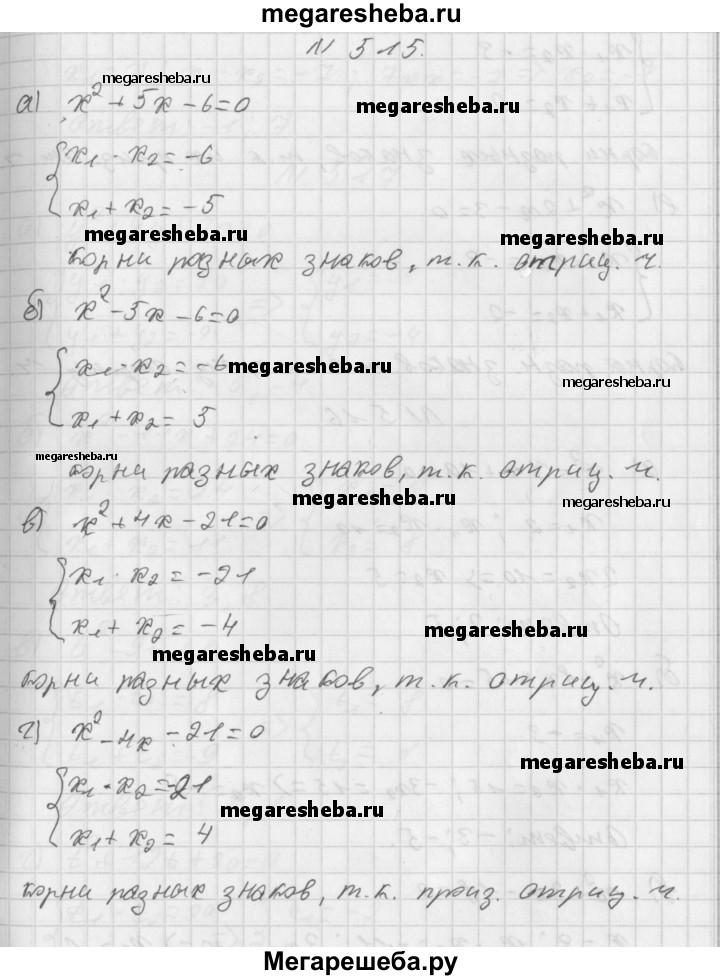 megaresheba.ru
N 515.
megaresheba.ru
а) x² + 5x - 6 = 0
megaresheba.ru
x₁ · x₂ = -6
x₁ + x₂ = -5
megaresheba.ru
megaresheba.ru
корни разных знаков, т.к. отриц. ч.
б) x² - 5x - 6 = 0
x₁ · x₂ = -6
megaresheba.ru
megaresheba.ru
x₁ + x₂ = 5
megaresheba.ru
корни разных знаков, т.к. отриц. ч.
megaresheba.ru
megaresheba.ru
в) x² + 4x - 21 = 0
x₁ · x₂ = -21
x₁ + x₂ = -4
megaresheba.ru
megaresheba.ru
корни разных знаков, т.к. отриц. ч.
г) x² - 4x - 21 = 0
megaresheba.ru
x₁ · x₂ = -21
megaresheba.ru
x₁ + x₂ = 4
корни разных знаков, т.к. произ. отриц. ч.
Мегарешеба.ру